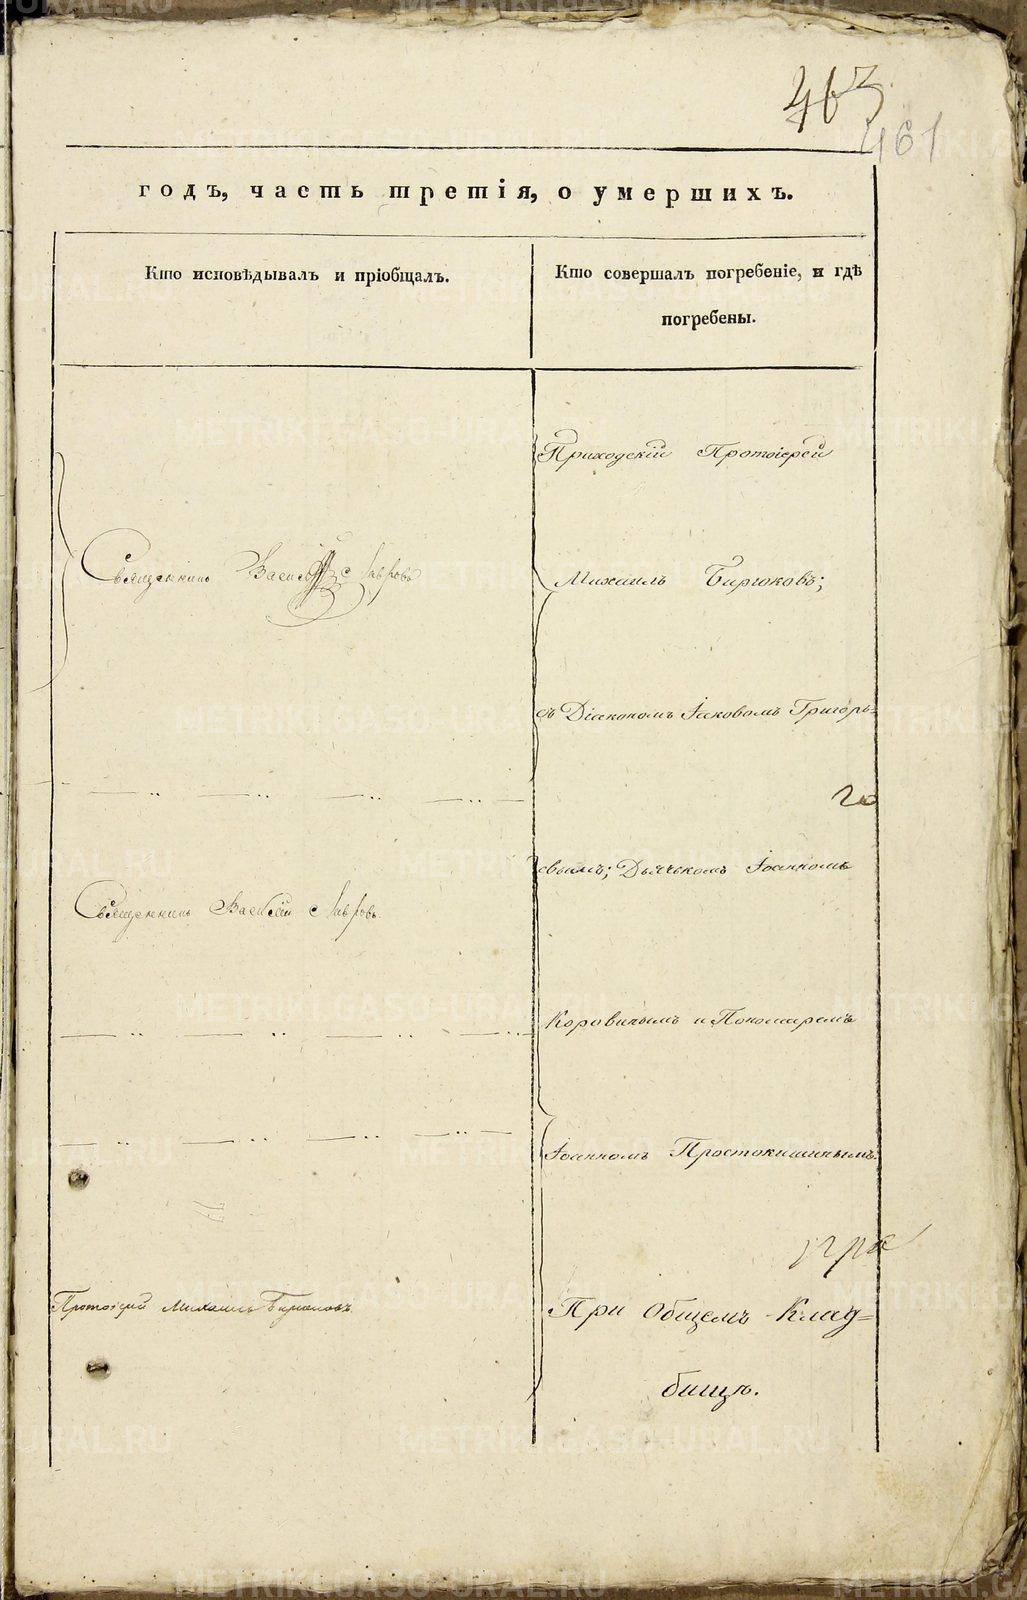 463
461
годъ, часть третія, о умершихъ.
Кто исповѣдывалъ и пріобщалъ.
Кто совершалъ погребеніе, и гдѣ
погребены.
Приходскій Протоіерей
Священникъ Василій Лавровъ
Михаилъ Бирюковъ;
съ Діакономъ Іаковомъ Григорь=
евымъ; Дьячкомъ Іоанномъ
Священникъ Василій Лавровъ.
Коровинымъ и Пономаремъ
Іоанномъ Простокишинымъ.
Протоіерей Михаилъ Бирюковъ
При Общемъ Клад=
бищѣ.
METRIKI.GASO-URAL.RU